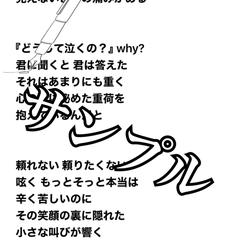 『どうって泣くの？』why?
君に聞くと 君は答えた
それはあまりにも重く
た重荷を
と
頼れない 頼りたくな
呟く もっとそっと本当は
辛く苦しいのに
その笑顔の裏に隠れた
小さな叫びが響く
サンプル